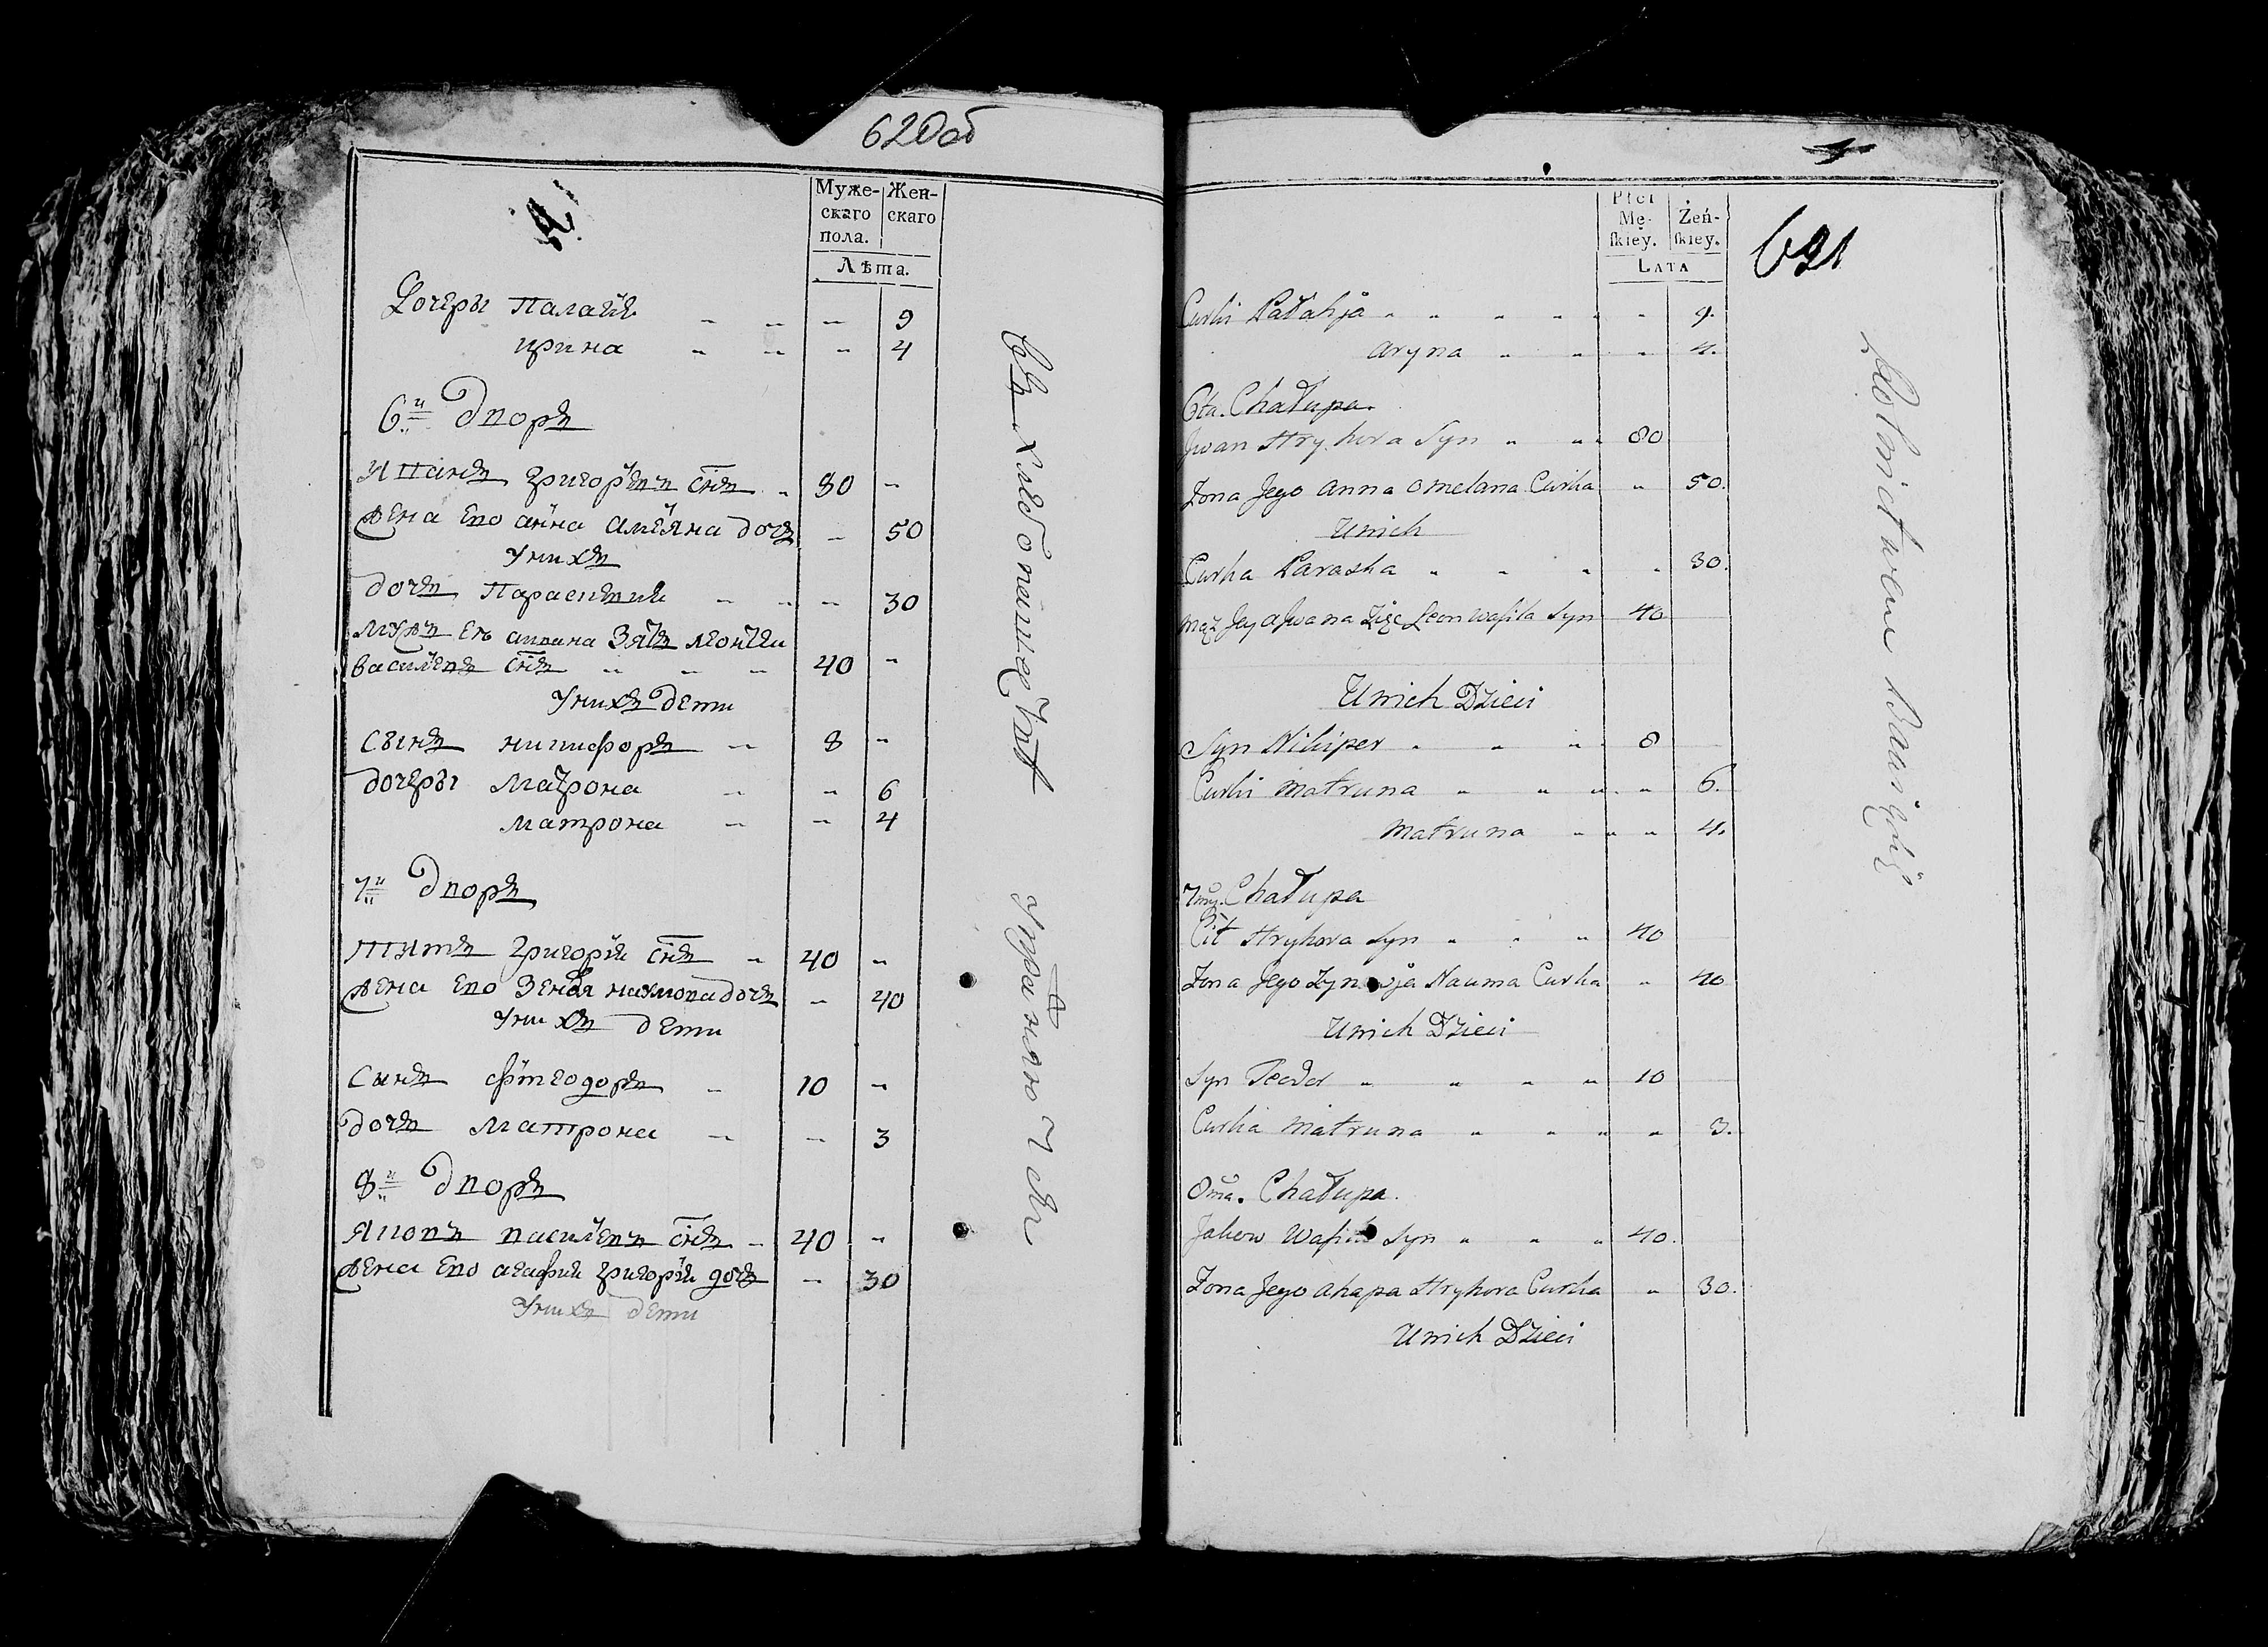 620об
Муже- Жен-
скаго скаго
пола.
Лѣта.
Дочеры Палагiя 9
Ирина 4
6й Дворъ
Иванъ Григорьевъ сiнъ 80
Жена Ево анна амеляна дочъ 50
У них
дочъ Парасковия 30
Мужъ Ея ивана Зять леонтей
василевъ сiнъ 40
У нихъ дети
Сынъ никифоръ 8
дочеры Матрона 6
матрона 4
7й Дворъ
Титъ Григорiя сiнъ 40
Жена Ево Зеновя наумова дочъ 40
У нихъ дети
Сынъ фтеодоръ 10
дочъ Матрона 3
8й Дворъ
Яковъ василевъ сiнъ 40
Жена Ево агафия григорiя дочъ 30
У нихъ дети
въ хлебопашествѣ упражняются
Płci
Mę- Żeń-
skiey. skiey.
Lata
621
Curki Pałahja 9.
Aryna 4.
6ta. Chałupa.
Jwan Hryhora Syn 80
Zona Jego Anna Omelana Curka 50.
Unich
Curka Paraska 30.
Mąż Jey a Jwana Zięć Leon Wasila Syn 40
Unich Dzieci
Syn Nikiper 8
Curki Matruna 6.
Matruna 4.
7ma. Chałupa
Cit Hryhora Syn 40
Zona Jego Zynowja Nauma Curka 40
Unich Dzieci
Syn Teodor 10
Curka Matruna 3.
8ma. Chałupa.
Jakow Wasila Syn 40.
Zona Jego Ahapa Hryhora Curka 30.
Unich Dzieci
Rolnictwem Bawiących